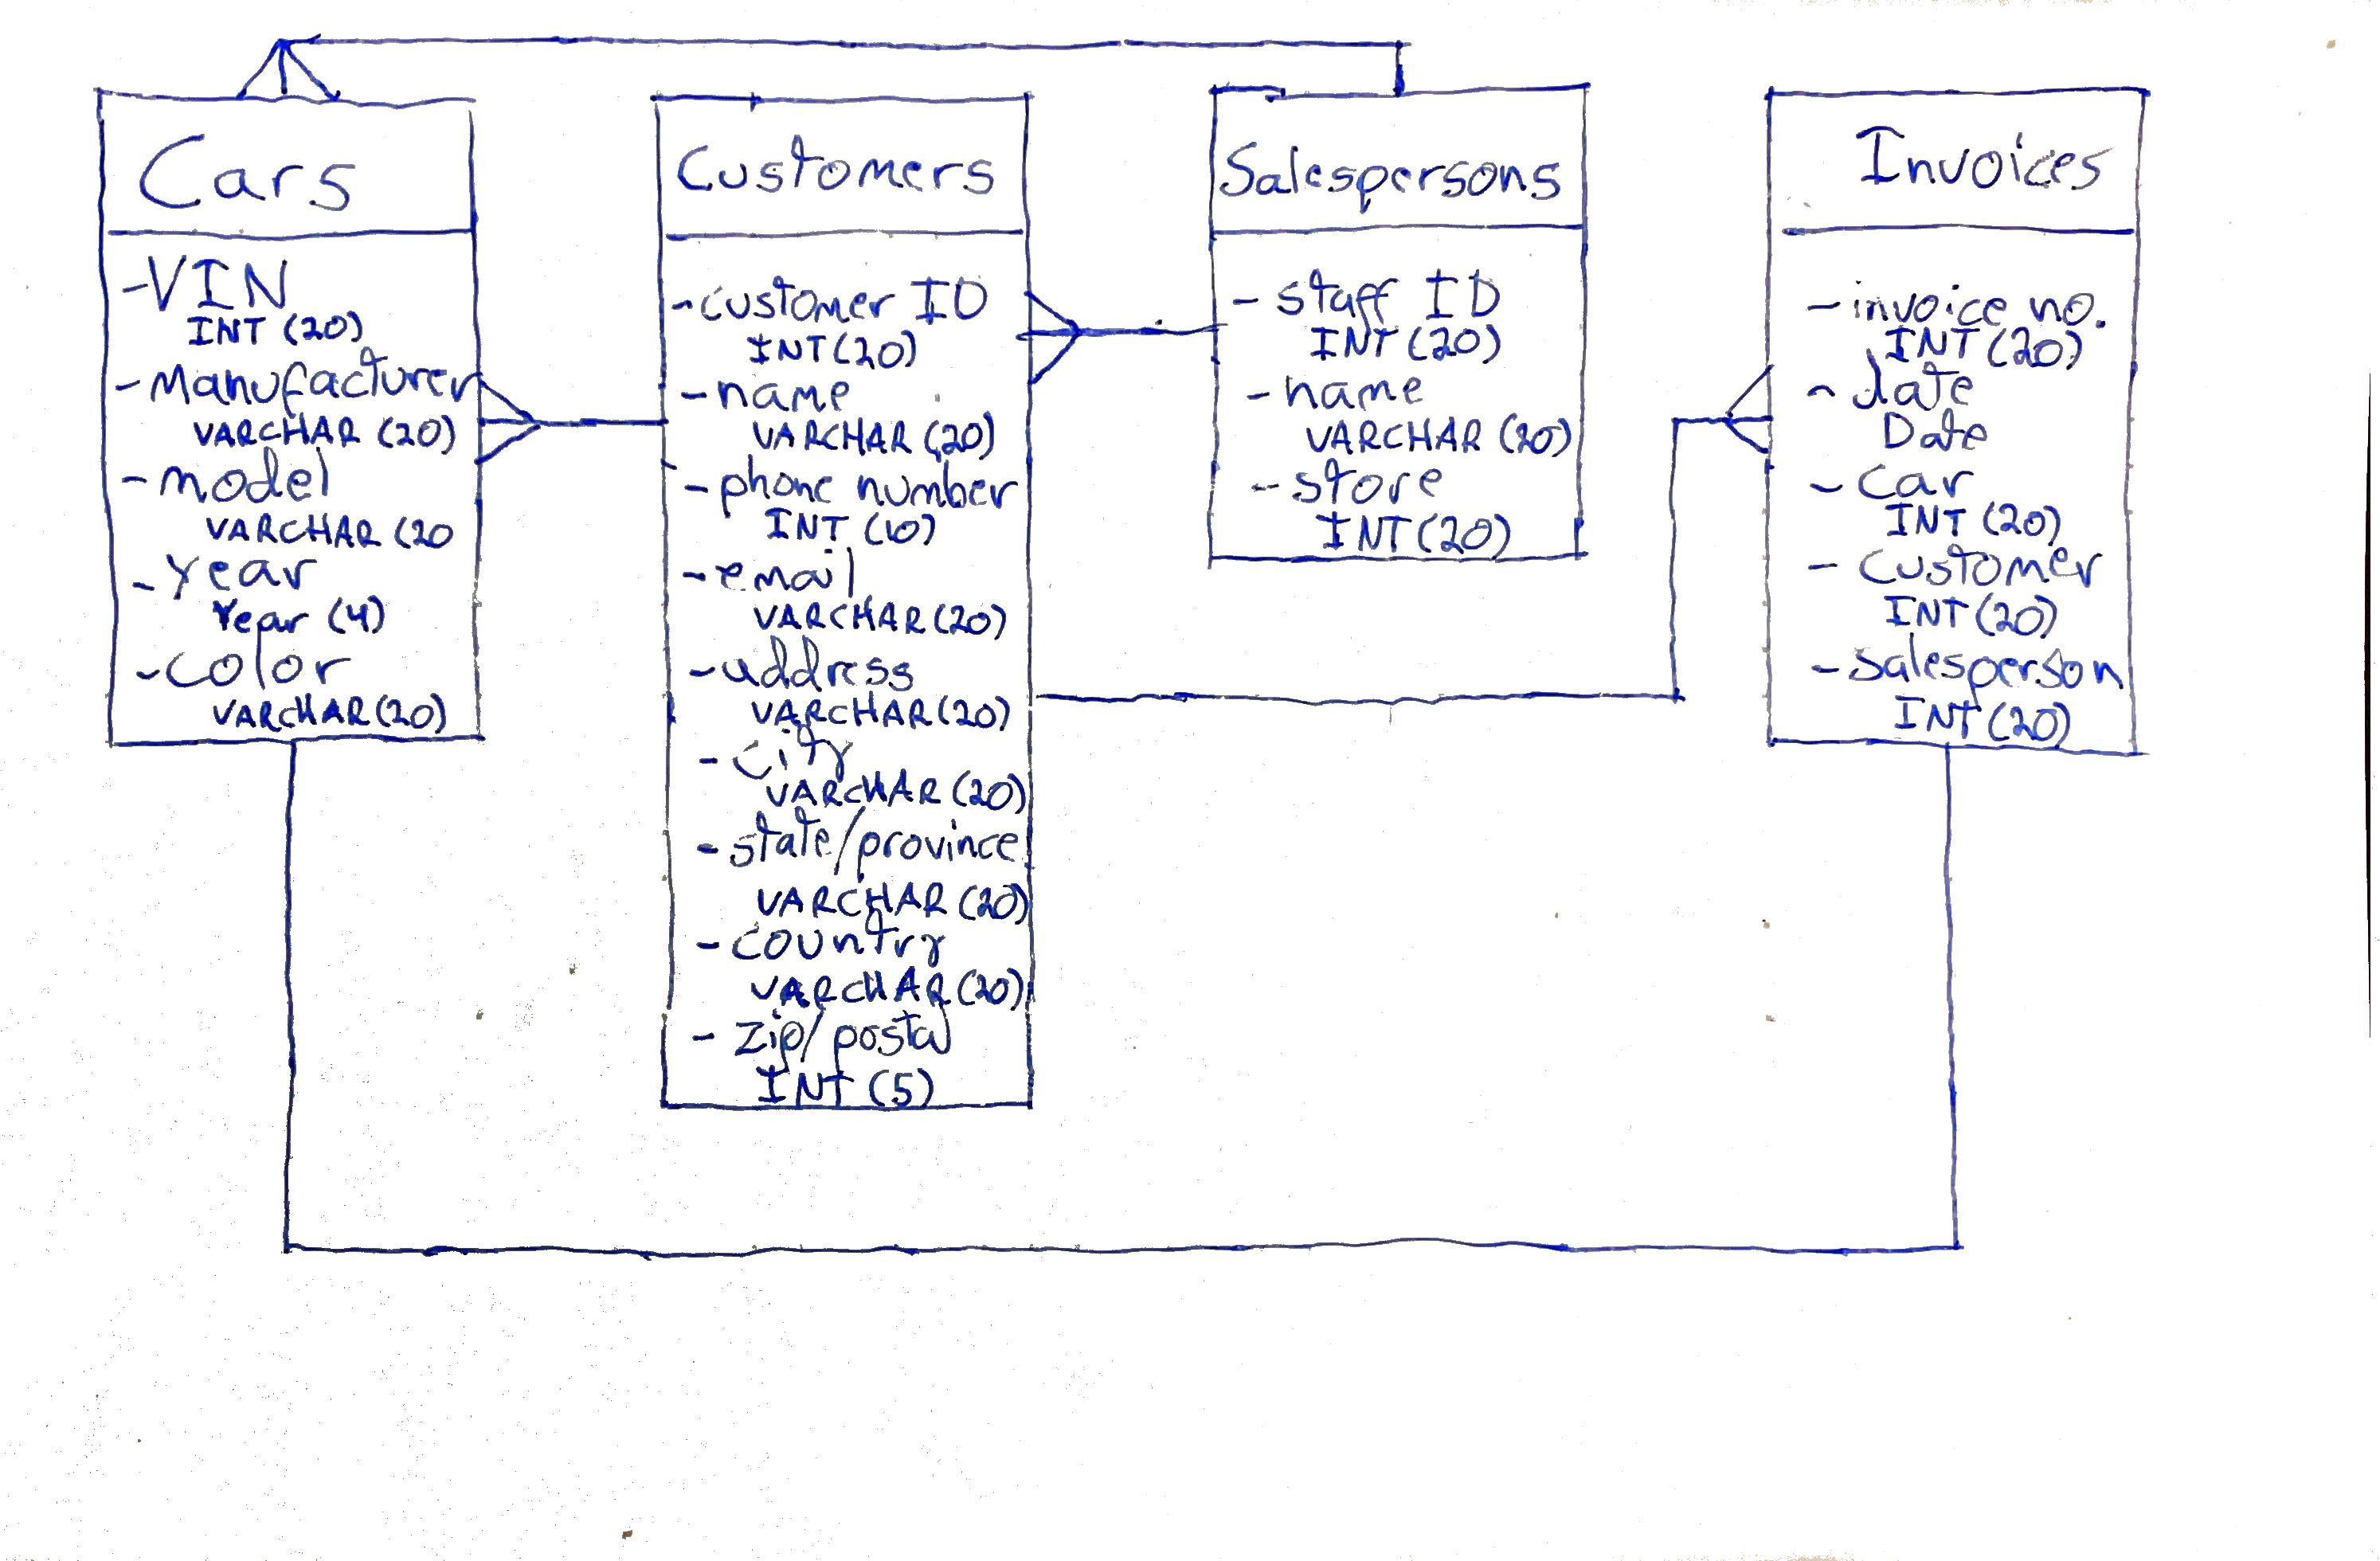 Cars
-VIN
INT (20)
-Manufacturer
VARCHAR (20)
-model
VARCHAR (20
-Year
Year (4)
-color
VARCHAR (20)
Customers
-customer ID
INT (20)
-name
VARCHAR (20)
-phone number
INT (10)
-email
VARCHAR (20)
-address
VARCHAR (20)
-city
VARCHAR (20)
-state/province
VARCHAR (20)
-country
VARCHAR (20)
- zip/postal
INT (5)
Salespersons
- staff ID
INT (20)
-name
VARCHAR (20)
-store
INT (20)
Invoices
-invoice no.
INT (20)
- date
Date
- car
INT (20)
- customer
INT (20)
-salesperson
INT (20)